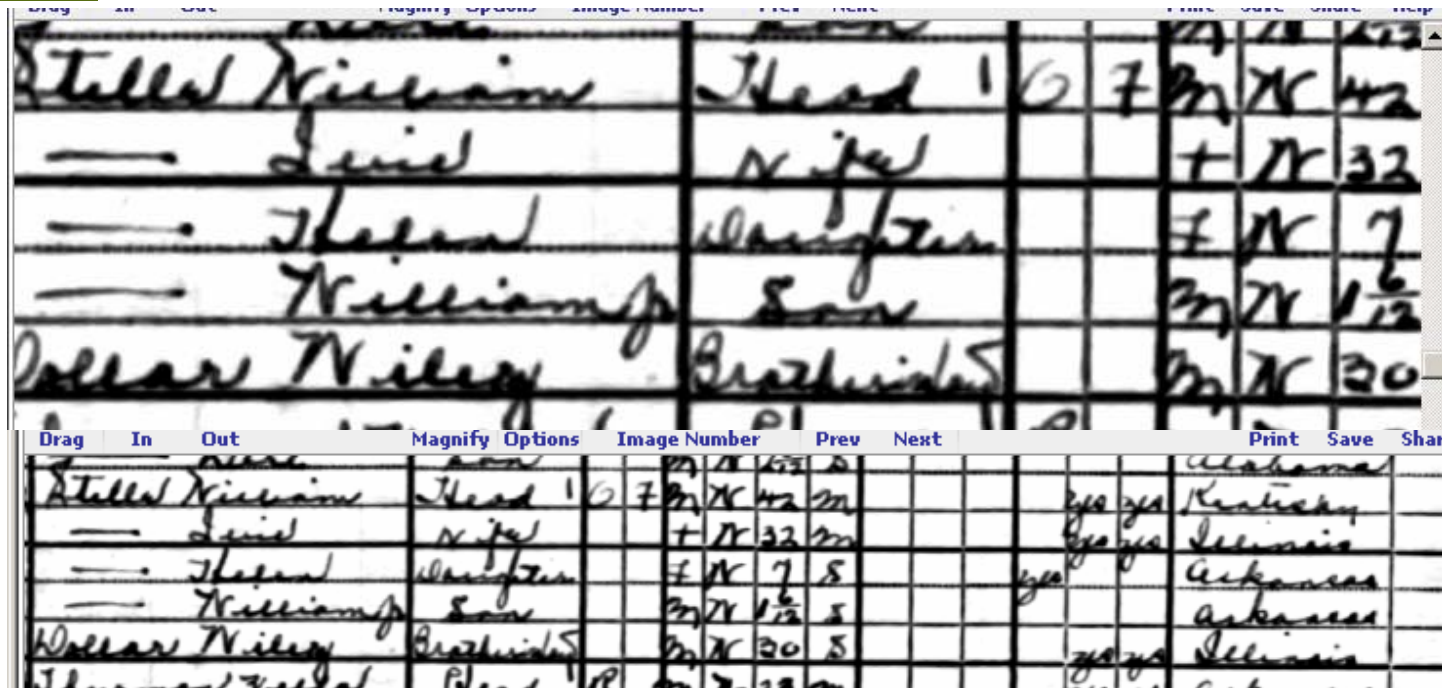 Drag In Out Magnify Options Image Number Prev Next Print Save Share Help
Stella William Head 1 O F M N 42
— Wife + N 32
— Daughter F N 7
— William Jr Son M N 1 6/12
Dollar Wiley Brotherinlaw M N 30
Drag In Out Magnify Options Image Number Prev Next Print Save Shar
Son M N S Alabama
Stella William Head 1 O F M N 42 M yes yes
— Wife + N 32 M yes yes Illinois
— Daughter F N 7 S yes Arkansas
— William Jr Son M N 1 6/12 S Arkansas
Dollar Wiley Brotherinlaw M N 30 S yes yes Illinois
Head R